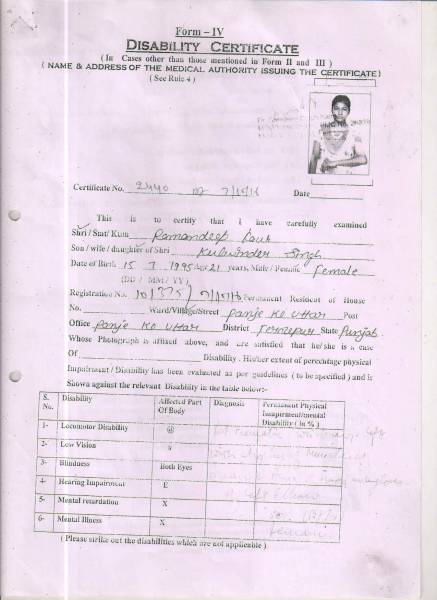 Form – IV
DISABILITY CERTIFICATE
( In Cases other than those mentioned in Form II and III )
( NAME & ADDRESS OF THE MEDICAL AUTHORITY ISSUING THE CERTIFICATE)
( See Rule 4 )
Certificate No. 2440 Date
This is to certify that I have carefully examined
Shri / Smt/ Kum Ramandeep Kaur
Son / wife / daughter of Shri Kulwinder Singh
Date of Birth 15 1995 Age 21 years, Male / Female Female
(DD / MM/ YY)
Registration No. Permanent Resident of House
No. Ward/Village/Street Panje Ke Uttar Post
Office Panje Ke Uttar District Ferozepur State Punjab
Whose Photograph is affixed above, and are satisfied that he/she is a case
Of Disability. His/her extent of percentage physical
Impairment / Disability has been evaluated as per guidelines ( to be specified ) and is
Shown against the relevant Disability in the table below:-
S. No. Disability Affected Part Of Body Diagnosis Permanent Physical Impairment/mental Disability ( In % )
1- Locomotor Disability @
2- Low Vision #
3- Blindness Both Eyes
4- Hearing Impairment E
5- Mental retardation X
6- Mental Illness X
( Please strike out the disabilities which are not applicable )